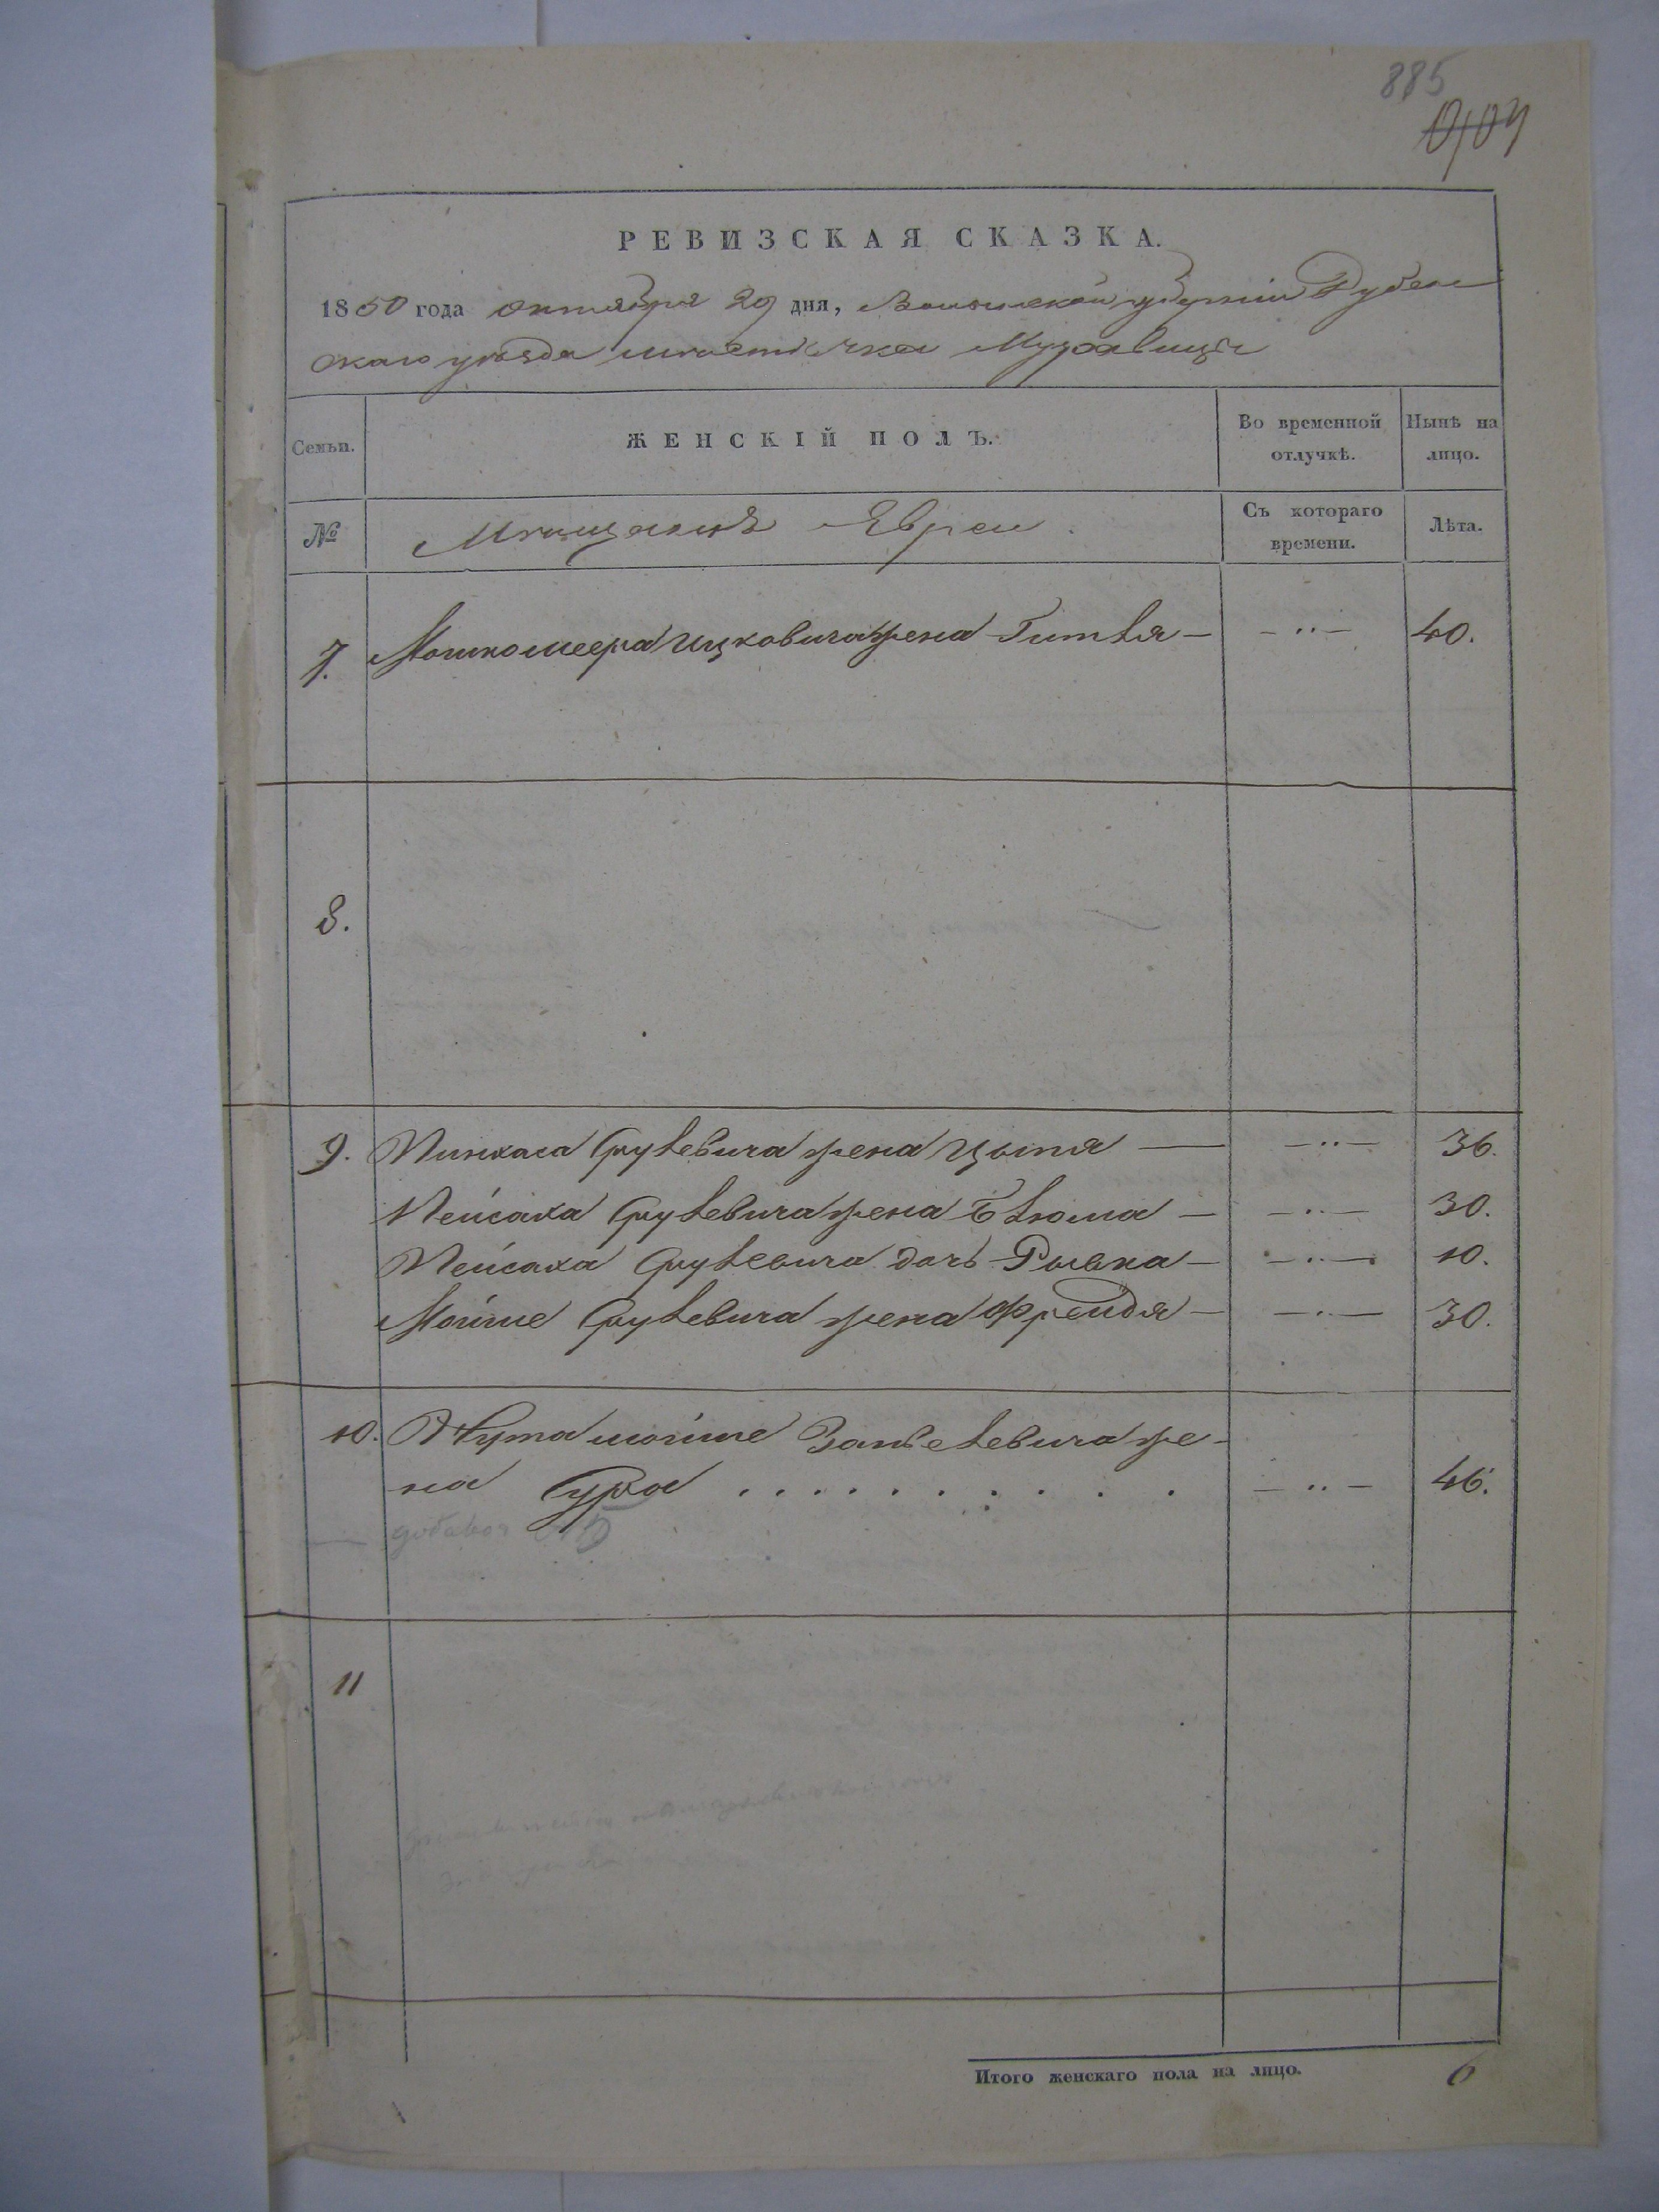 885
РЕВИЗСКАЯ СКАЗКА.
1850 года октября 29 дня, Волынской губернiи Дубен
скаго уѣзда мѣстечка
Семьи.
ЖЕНСКІЙ ПОЛЪ.
Во временной отлучкѣ.
Нынѣ на лицо.
№
Мѣщанъ Евреи.
Съ котораго времени.
Лѣта.
7. Мошкомеера Ицковича жена Гитля — — „ — 40.
8.
9. Пинхаса Срулевича жена Цытя — — „ — 36.
Пейсаха Срулевича жена Блюма — — „ — 30.
Пейсаха Срулевича дочь Рывка — — „ — 10.
Мойше Срулевича жена Фрейдя — — „ — 30.
10. мойше Занвелевича же-
на Сура . . . . . . . . . . — „ — 46.
11
Итого женскаго пола на лицо. 6